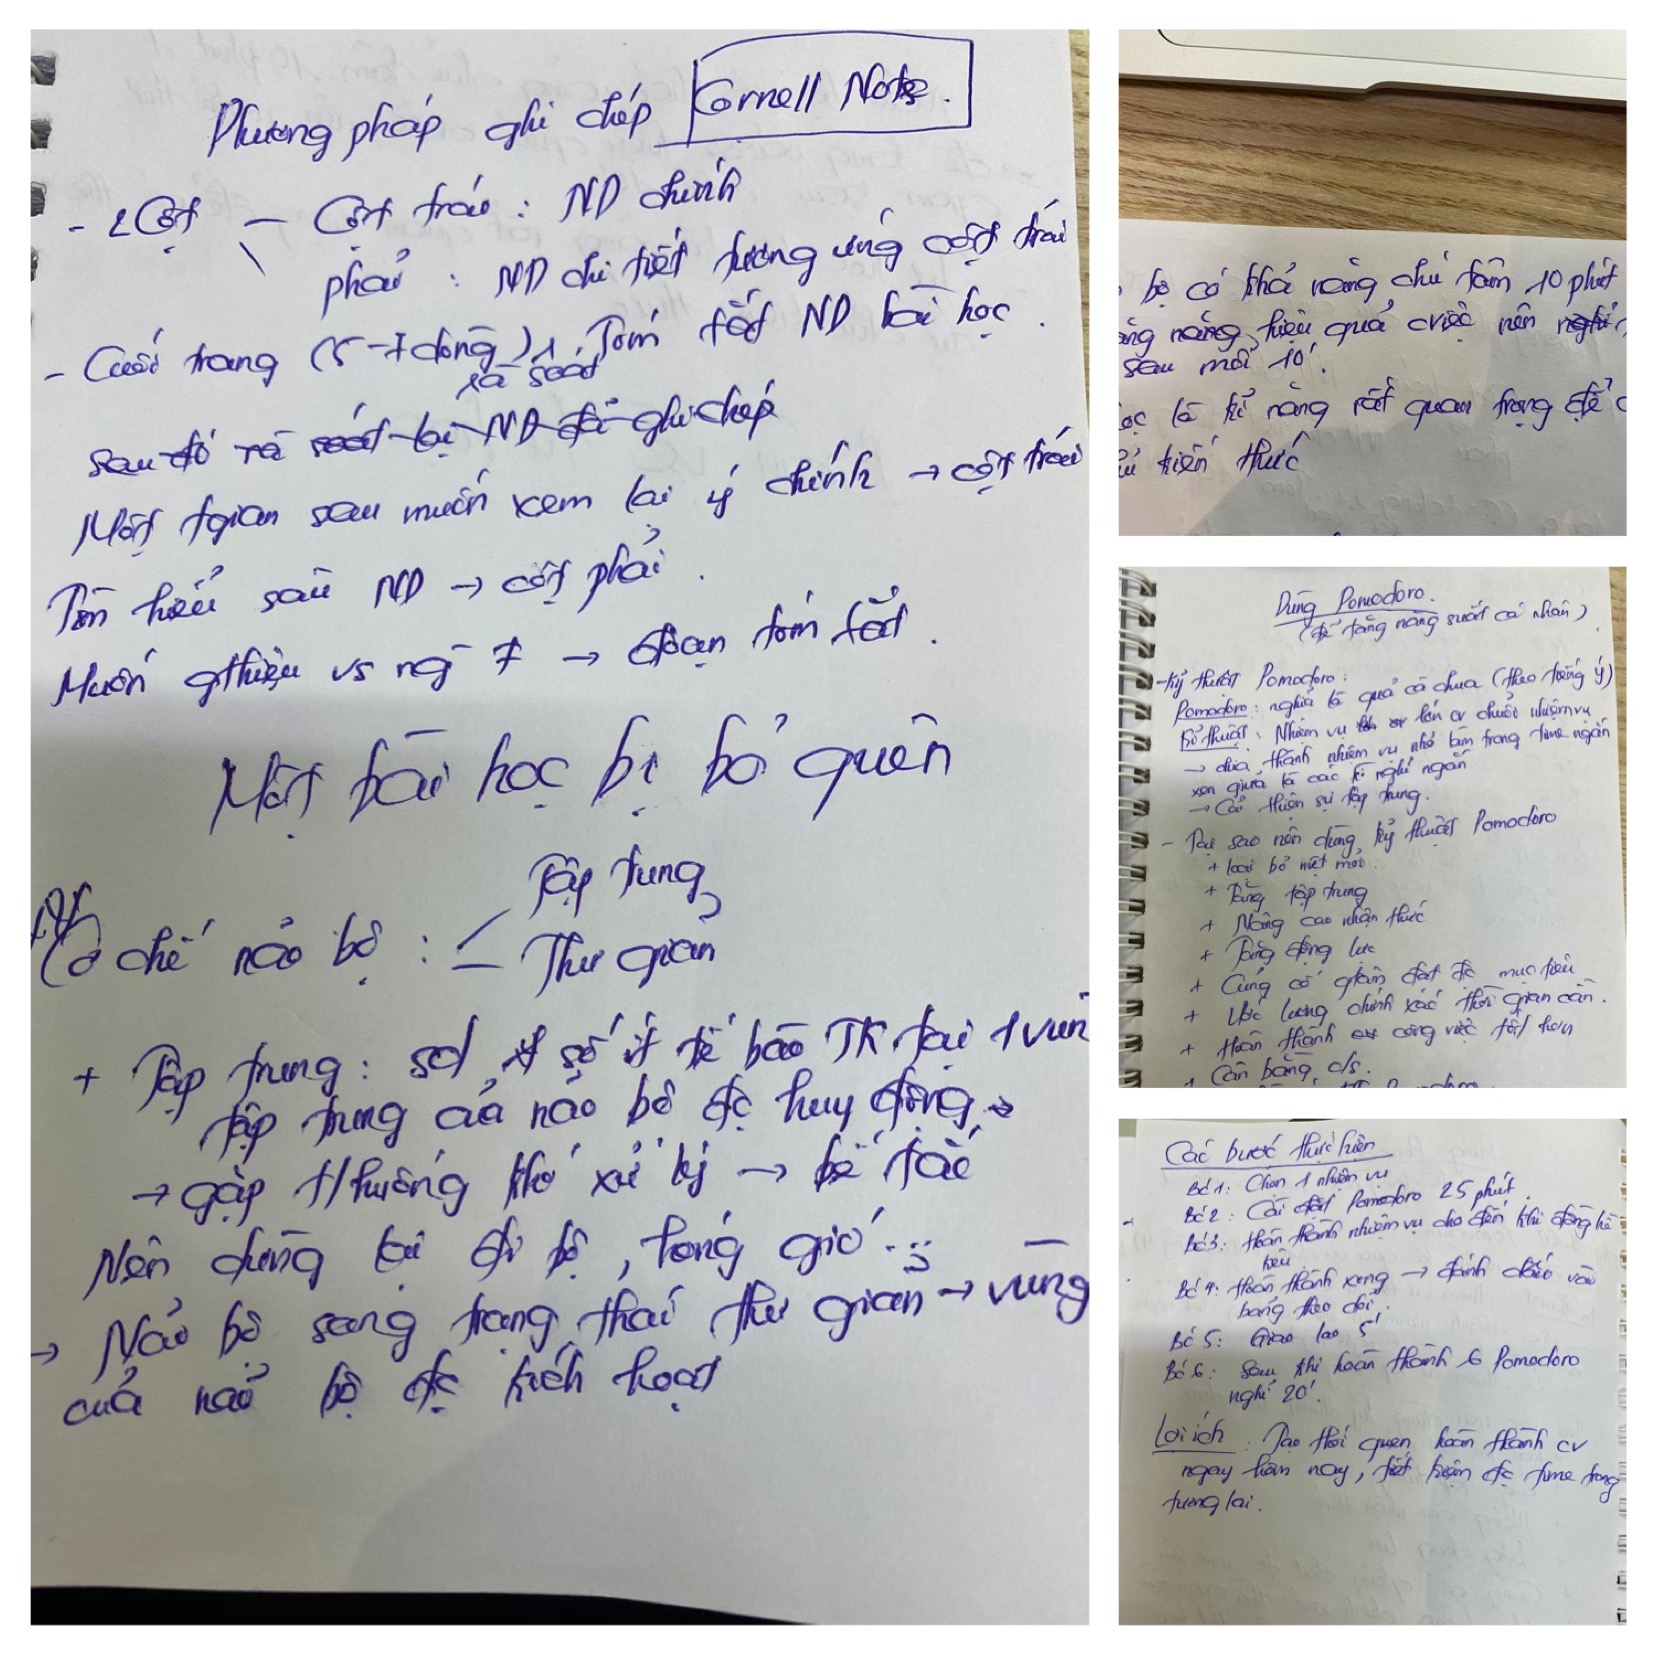 Phương pháp ghi chép Cornell Notes.
- 2 Cột — Cột trái : ND chính
phải : ND chi tiết tương ứng cột trái
- Cuối trang (5-7 dòng) Tóm tắt ND bài học.
rà soát
sau đó rà soát lại ND đã ghi chép
Một tgian sau muốn xem lại ý chính → cột trái
Tìm hiểu sâu ND → cột phải.
Muốn gthiệu vs ng ≠ → đoạn tóm tắt.
Một bài học bị bỏ quên
Tập trung
Cơ chế não bộ : Thư giãn
+ Tập trung : sd số ít tế bào TK tại 1 vùng
tập trung của não bộ đc huy động
→ gặp t/huống khó xử lý → bế tắc
Nên dừng lại đi bộ, hóng gió...
→ Não bộ sang trạng thái thư giãn → vùng
của não bộ đc kích hoạt
bộ có khả năng chú tâm 10 phút
năng hiệu quả cviệc nên nghỉ
sau mỗi 10'.
học là kĩ năng rất quan trọng để
kiến thức
Dùng Pomodoro.
(để tăng năng suất cá nhân)
- Kỹ thuật Pomodoro :
Pomodoro : nghĩa là quả cà chua (theo tiếng ý)
Kĩ thuật : Nhiệm vụ lớn or chuỗi nhiệm vụ
→ chia thành nhiệm vụ nhỏ làm trong time ngắn
xen giữa là các kì nghỉ ngắn
→ Cải thiện sự tập trung.
- Tại sao nên dùng kỹ thuật Pomodoro
+ loại bỏ mệt mỏi
+ Tăng tập trung
+ Nâng cao nhận thức
+ Tăng động lực
+ Củng cố qtâm đạt đc mục tiêu
+ Ước lượng chính xác thời gian cần.
+ Hoàn thành công việc tốt hơn
+ Cân bằng c/s.
Các bước thực hiện
Bc 1 : Chọn 1 nhiệm vụ
Bc 2 : Cài đặt Pomodoro 25 phút.
Bc 3 : hoàn thành nhiệm vụ cho đến khi đồng hồ
kêu
Bc 4 : hoàn thành xong → đánh dấu vào
bảng theo dõi.
Bc 5 : Giải lao 5'
Bc 6 : Sau khi hoàn thành 6 Pomodoro
nghỉ 20'.
Lợi ích : Tạo thói quen hoàn thành cv
ngay hôm nay, tiết kiệm đc time trong
tương lai.